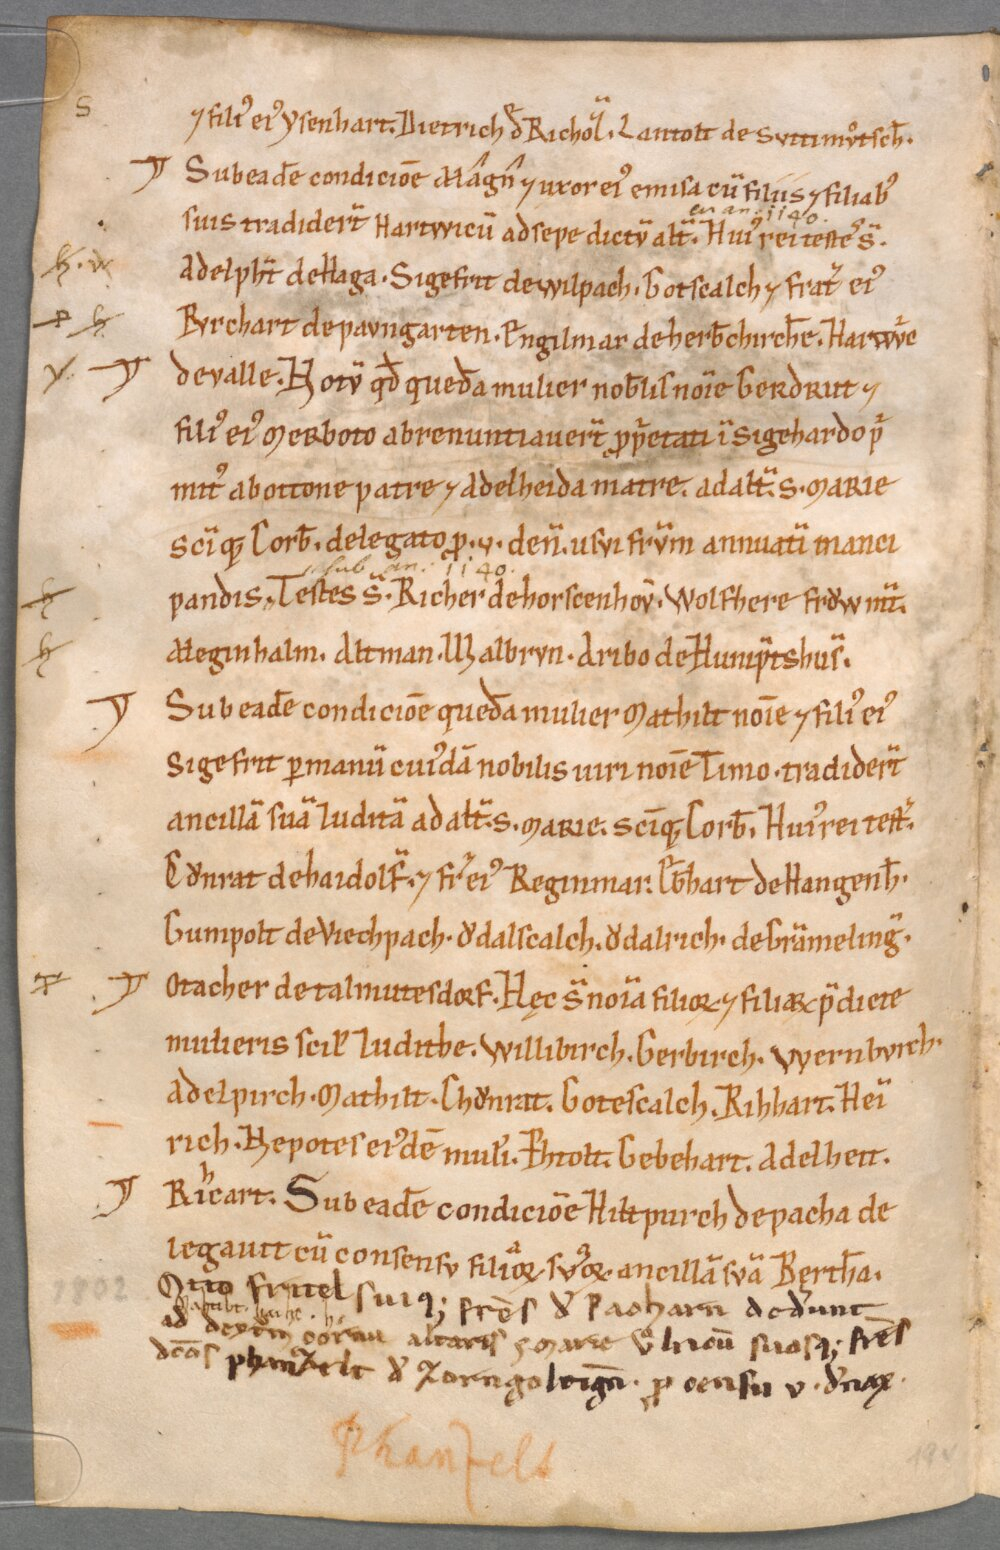 ⁊ filiꝰ eiꝰ ysenhart. Dietrich de Richol̄. Lantolt de Svttimv̊tsch̄.
S
Sub ead̄e condiciōe Māgn̄ ⁊ uxor eiꝰ emisa cū filiis ⁊ filiabꝰ
suis tradider̄t Hartwicū ad sepe dictū alt̄. Huiꝰ rei testeˢ s̄.
1140.
Adelpħt de Haga. Sigefrit de wilpach. Gotscalch ⁊ frat̄ eiꝰ
Pvrchart de pavngarten. Engilmar de herb̄chirch̄e. Harwic
de valle. Notū qđ queđa mulier nob̄lis noīe Gerdrut ⁊
filiꝰ eiꝰ Merboto abrenuntiaver̄t ꝓp̄etati ī Sigehardo p̄
mitꝰ ab ottone patre ⁊ Adelheida matre. ad alt̄. s. Marie
scīqꝫ Corb̄. delegato ꝓ. v. den̄. usvi fr̄vm annuatī manci
sub an. 1140.
pandis. Testes s̄. Richer de horscenhov̄. Wolfhere frǒw
Meginhalm. Altman. Walbrvn. Aribo de Humpt̄shus̄.
Sub ead̄e condiciōe queđa mulier Mathilt noīe ⁊ filiꝰ eiꝰ
Sigefrit ꝑ manū cuiꝰdā nobilis uiri noīe Timo. tradider̄t
ancillā suā Iuditā ad alt̄. s. Marie. scīqꝫ Corb̄. Huiꝰ rei test̄.
Chv̊nrat de haidolf̄. ⁊ fr̄ eiꝰ Reginmar. Eb̄hart de Hangenh̄.
Gumpolt de Viechpach. Ǒdalscalch. Ǒdalrich. de Grāmelinḡ.
Otacher de talmutesdorf. Hęc s̄ noīa filioꝝ ⁊ filiaꝝ p̄dicte
mulieris scil̄ Iudithe. Willibirch. Gerbirch. Wernbvrch.
Adelpirch. Mathilt. Chǒnrat. Gotescalch. Rihhart. Heī
rich. Nepotes eiꝰdē muliꝰ. Ehtolt. Gebehart. Adelheit.
Rihcart. Sub ead̄e condiciōe Hiltpurch de pacha de
legauit cū consensv filioꝝ svoꝝ. ancillā svā Bęrtha.
Otto fritel suiqꝫ fr̄es đ Pacharn dederunt
ad dextrū cornu altaris s marie vlricū suosqꝫ fr̄es
dc̄os phanzelt đ Zorngoltign̄. ꝓ censu v. đnaꝝ.
Phanzelt